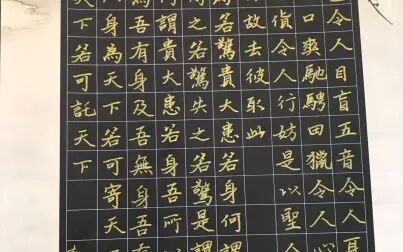 令人目盲五音令人耳
口爽馳騁田獵令人心
貨令人行妨是以聖
故去彼取此
若驚貴大患若身何謂
得之若驚失之若驚是謂
何謂貴大患若身吾所
為吾有身及吾無身吾有
身為天下若可寄天
天下若可託天下